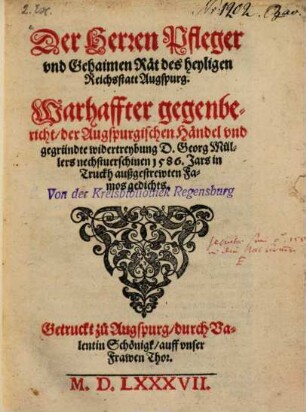 Der Herren Pfleger
vnd Gehaimen Rät des heyligen
Reichsstatt Augspurg.
Warhaffter gegenbe-
richt/der Augspurgischen Händel vnd
gegründte widertreybung D. Georg Mül-
lers nechstuerschinen 1586. Jars in
Truckh außgestrewten Fa-
mos gedichts.
Von der Kreisbibliothek Regensburg
Getruckt zů Augspurg/durch Va-
lentin Schönigk/auff vnser
Frawen Thor.
M. D. LXXXVII.